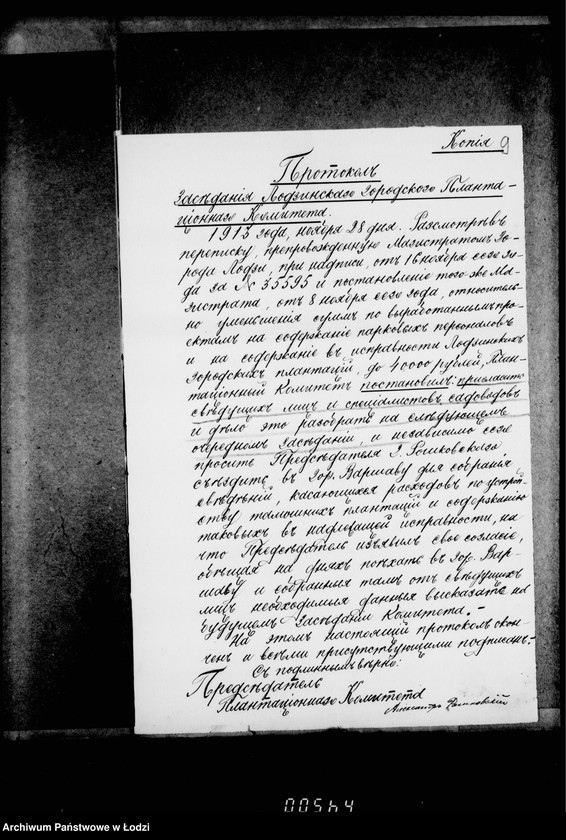 Копія 9
Протоколъ
Засѣданія Лодзинскаго Городского Планта-
ціоннаго Комитета.
1913 года, ноября 28 дня. Разсмотрѣвъ
переписку, препровожденную Магистратомъ Го-
рода Лодзи, при надписи, отъ 16 ноября сего го-
да за № 35595 и постановленіе того же Ма-
гистрата, отъ 8 ноября сего года, относитель-
но уменьшенія суммъ по выработаннымъ про-
ектамъ на содержаніе парковыхъ персоналовъ
и на содержаніе въ исправности Лодзинскихъ
городскихъ плантацій, до 40000 рублей, План-
таціонный Комитетъ постановилъ: пригласить
свѣдущихъ лицъ и спеціалистовъ садоводовъ
и дѣло это разобрать на слѣдующемъ
очередномъ засѣданіи, и независимо сего
просить Предсѣдателя Г. Рошковскаго
съѣздить въ гор. Варшаву для собранія
свѣдѣній, касающихся расходовъ по устрой-
ству тамошнихъ плантацій и содержанію
таковыхъ въ надлежащей исправности, на
что Предсѣдатель изъявилъ свое согласіе,
обѣщая на дняхъ поѣхать въ гор. Вар-
шаву и собранныя тамъ отъ свѣдущихъ
лицъ необходимыя данныя высказать на
будущемъ засѣданіи Комитета.-
На этомъ настоящій протоколъ окон-
ченъ и всѣми присутствующими подписанъ.-
Съ подлиннымъ вѣрно:
Предсѣдатель
Плантаціоннаго Комитета
Александръ Рошковскій
00564
Archiwum Państwowe w Łodzi